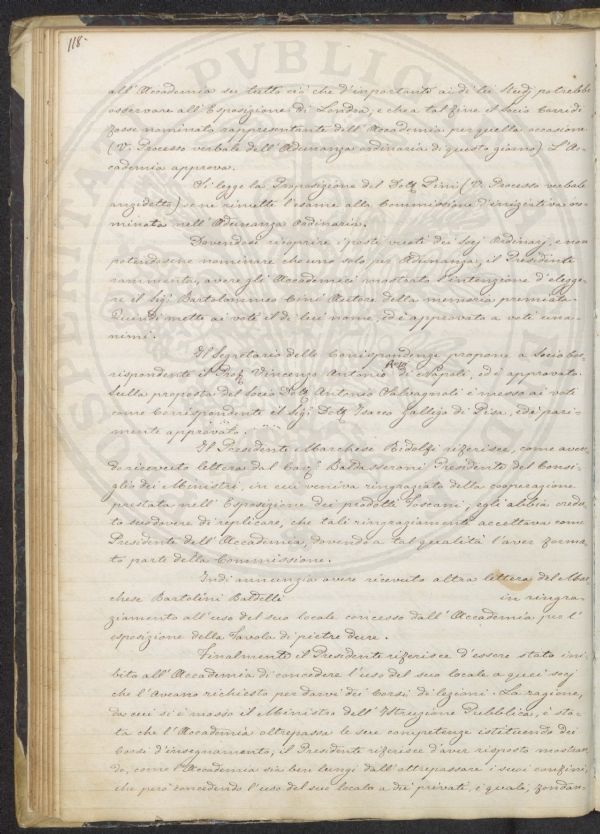 118.
all'Accademia su tutto ciò che d'importante ai di lei studj potrebbe
osservare all'Esposizione di Londra, e che a tal fine il socio Corridi
fosse nominato rappresentante dell'Accademia per quella occasione
(V. Processo verbale dell'Adunanza ordinaria di questo giorno) L'Ac-
cademia approva.
Si legge la Proposizione del Dott. Pini (V. Processo verbale
anzidetto) e ne rimette l'esame alla Commissione d'iniziativa no-
minata nell'Adunanza Ordinaria.
Dovendosi ricoprire i posti vuoti dei Socj Ordinarj, e non
potendosene nominare che uno solo per Adunanza, il Presidente
rammenta, avere gli Accademici mostrato l'intenzione d'elegge-
re il Sigr. Bartolommeo Cini Autore della memoria premiata.
Quindi mette ai voti il di lui nome, ed è approvato a voti una-
nimi.
Il Segretario delle Corrispondenze propone a Socio Cor-
rispondente il Prof. Vincenzo Antonio de Napoli, ed è approvato.
Sulla proposta del Socio Dott. Antonio Salvagnoli è messo ai voti
come Corrispondente il Sigr. Dott. Isacco Gallego di Pisa, ed è pari-
mente approvato.
Il Presidente Marchese Ridolfi riferisce, come aven-
do ricevuto lettera dal Cav. Baldasseroni Presidente del Consi-
glio dei Ministri, in cui veniva ringraziato della cooperazione
prestata nell'Esposizione dei prodotti Toscani, egli abbia credu-
to suo dovere di replicare, che tali ringraziamenti accettava come
Presidente dell'Accademia, dovendo a tal qualità l'aver forma-
to parte della Commissione.
Indi annunzia avere ricevuto altra lettera del Mar-
chese Bartolini Baldelli in ringra-
ziamento all'uso del suo locale concesso dall'Accademia per l'
esposizione della Tavola di pietre dure.
Finalmente il Presidente riferisce d'essere stato ini-
bito all'Accademia di concedere l'uso del suo locale a quei socj
che l'aveano richiesto per darvi dei Corsi di lezioni. La ragione,
da cui si è mosso il Ministro dell'Istruzione Pubblica, è sta-
ta che l'Accademia oltrepassa le sue competenze istituendo dei
Corsi d'insegnamento; il Presidente riferisce d'aver risposto mostran-
do, come l'Accademia sia ben lungi dall'oltrepassare i suoi confini,
che però concedendo l'uso del suo locale a dei privati, i quali, fondan-